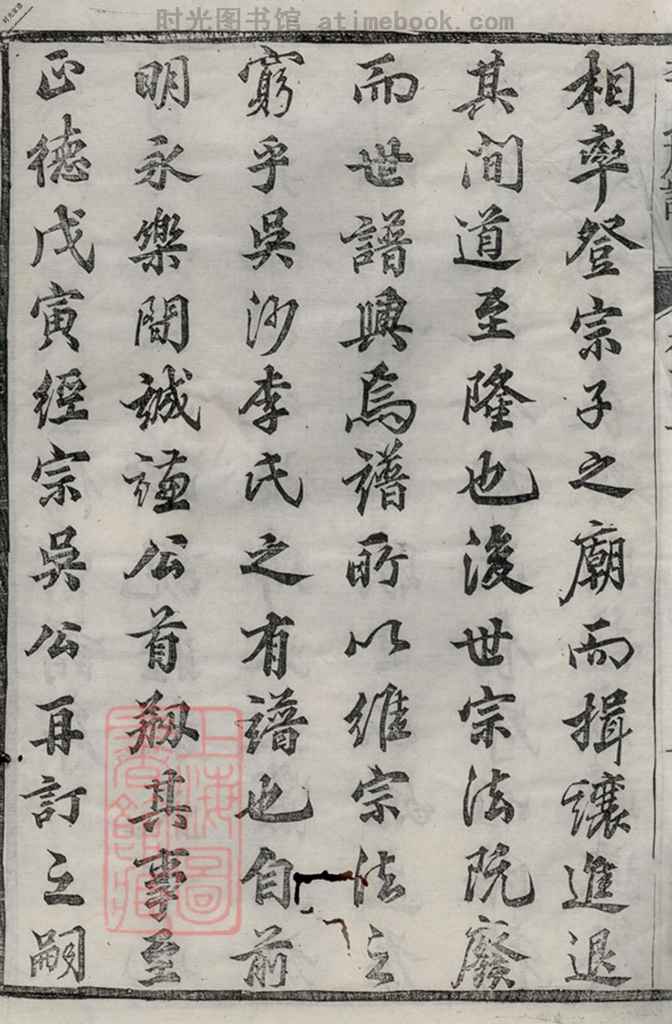 时光图书馆 atimebook.com
相率登宗子之廟而揖讓進退
其间道至隆也後世宗法既廢
而世譜興焉譜所以維宗法之
窮乎吳沙李氏之有譜也自前
明永樂間誠謙公首剏其事至
正德戊寅經宗吳公再訂之嗣
上海圖
書館藏